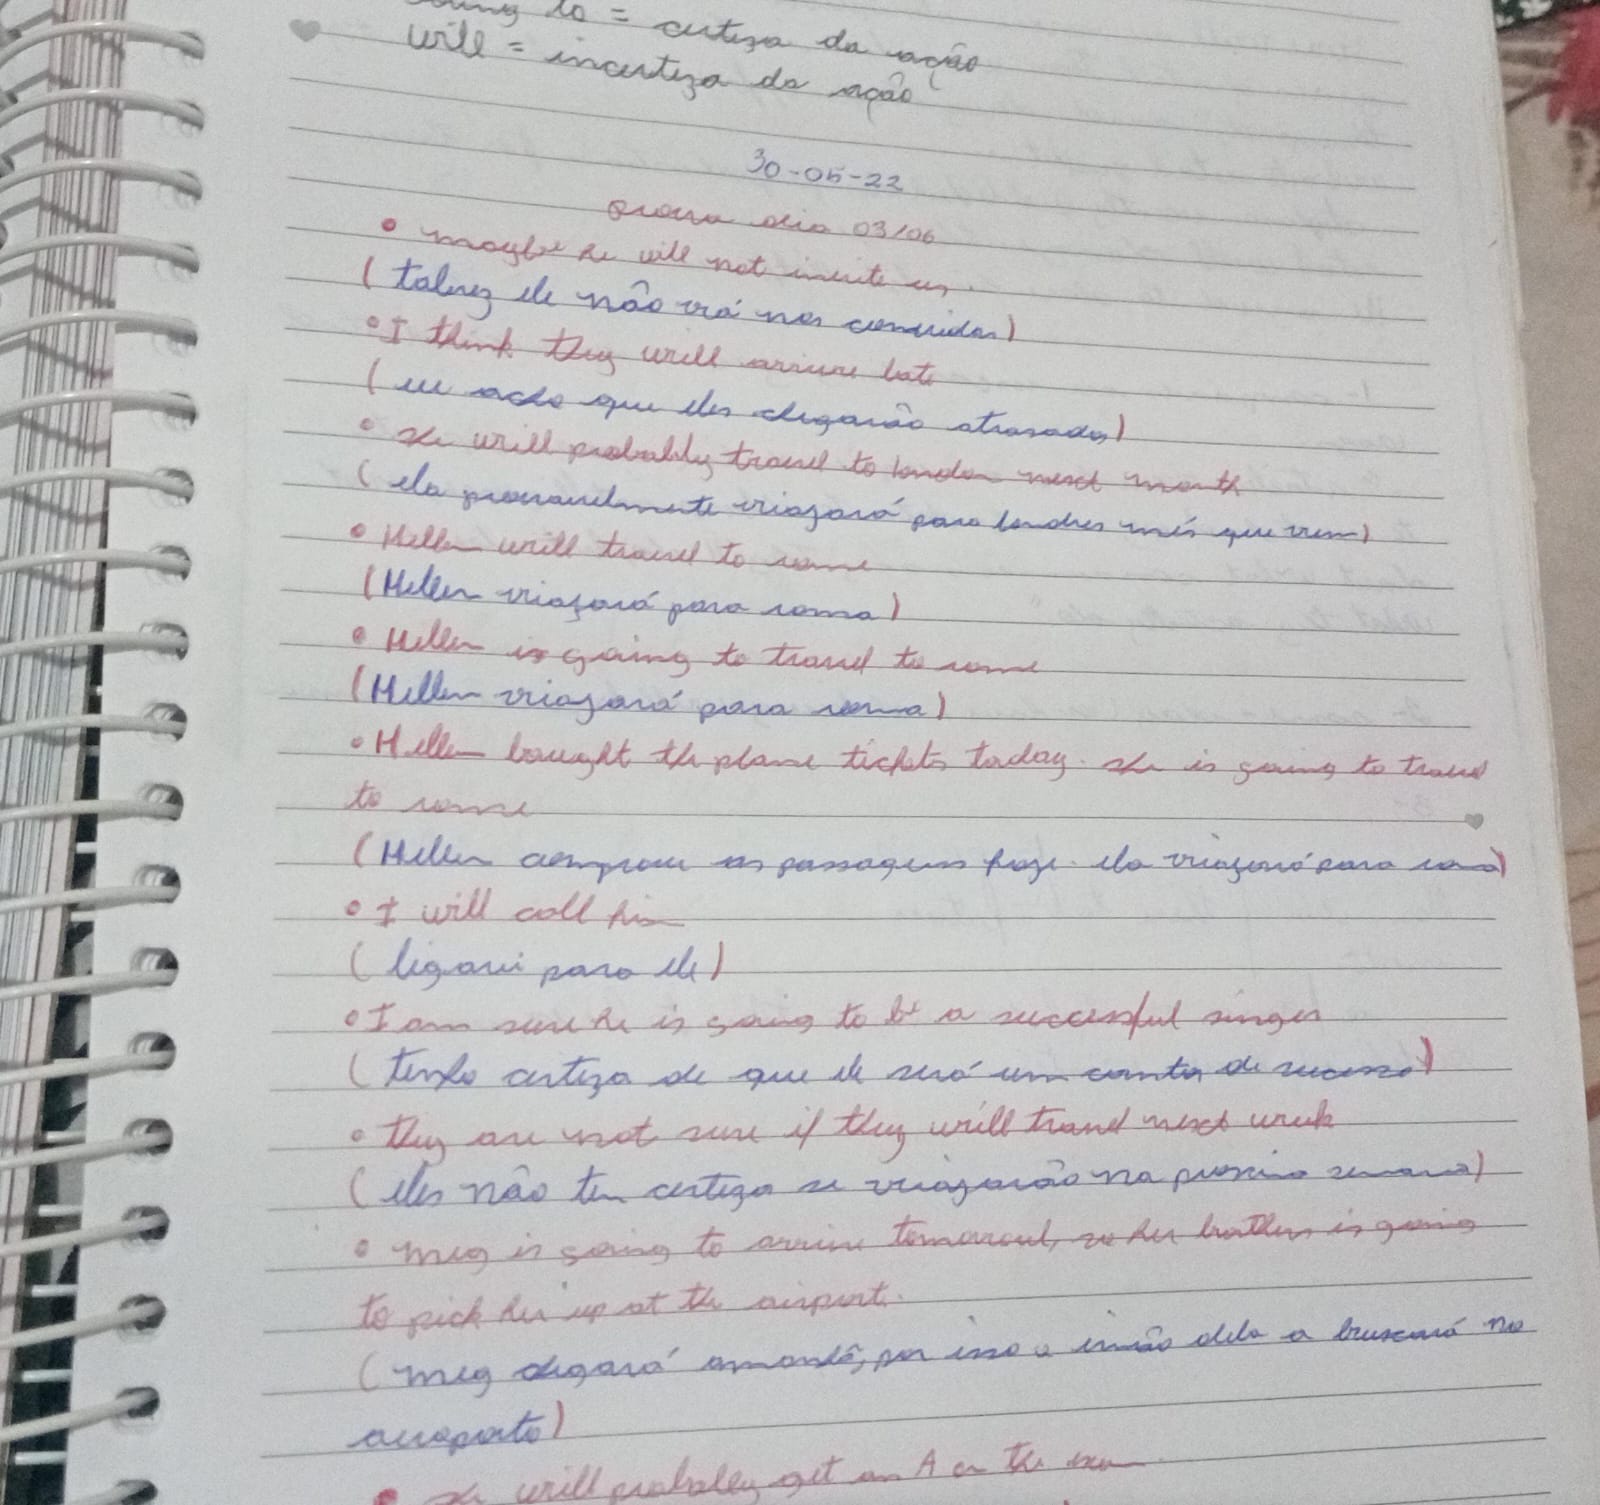 going to = certeza da ação
will = incerteza da ação
30-05-22
prova dia 03/06
• maybe he will not invite us.
(talvez ele não irá nos convidar)
• I think they will arrive late
(eu acho que eles chegarão atrasados)
• she will probably travel to london next month
(ela provavelmente viajará para londres mês que vem)
• Hellen will travel to rome
(Hellen viajará para roma)
• Hellen is going to travel to rome
(Hellen viajará para roma)
• Hellen bought the plane tickets today. she is going to travel
to rome
(Hellen comprou as passagens hoje. ela viajará para roma)
• I will call him
(ligarei para ele)
• I am sure he is going to be a successful singer
(tenho certeza de que ele será um cantor de sucesso)
• they are not sure if they will travel next week
(eles não tem certeza se viajarão na proxima semana)
• meg is going to arrive tomorowl, so her brothers is going
to pick her up at the airport.
(meg chegará amanhã, por isso o irmão dela a bruscará no
aeroporto)
• she will probabley get an A on the exam.